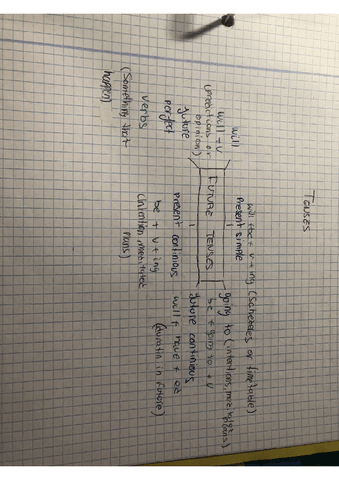 Tenses
will
will + V
(predictions or
opinions)
Present simple
will + be + V + ing (schedules or timetable)
going to (intentions,
be + going to + V
FUTURE TENSES
future
perfect
verbs
(something that
happen)
present continious
be + V + ing
(intention,
plans)
future continuous
will + have + be
(duration in future)